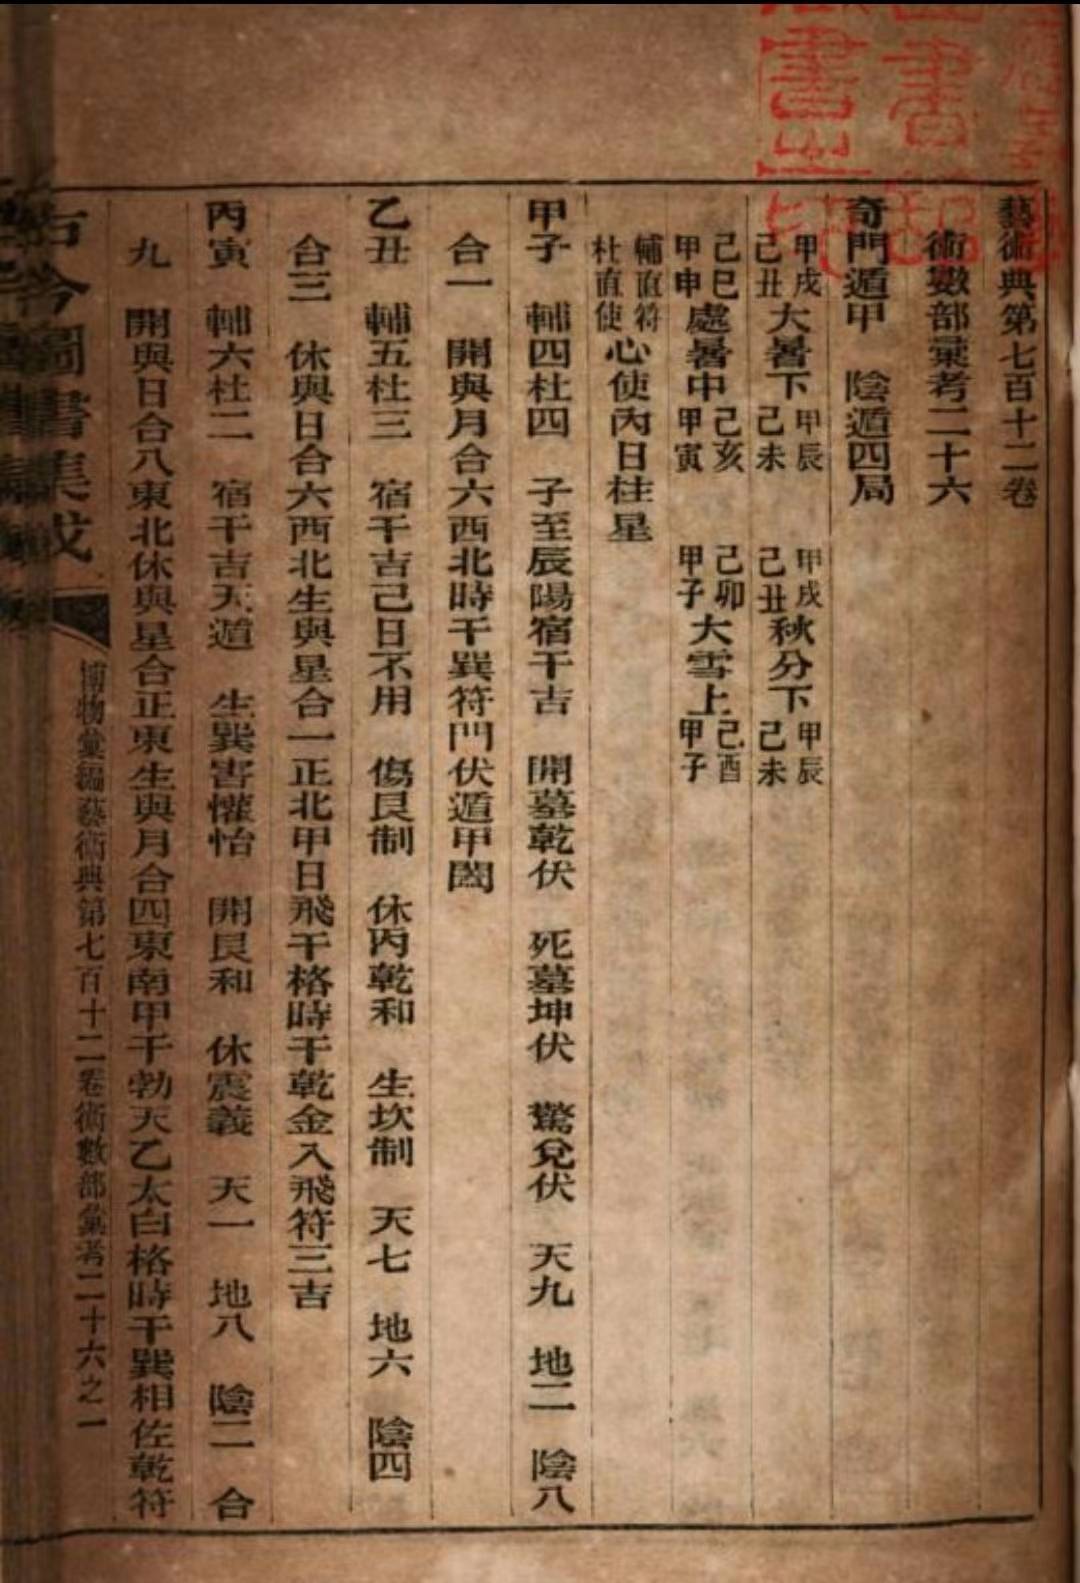 藝術典第七百十二卷
術數部彙考二十六
奇門遁甲　陰遁四局
甲戌己丑大暑下甲辰己未　甲戌己丑秋分下甲辰己未
己巳甲申處暑中己亥甲寅　己卯甲子大雪上己酉甲子
輔直符杜直使心使丙日柱星
甲子　輔四杜四　子至辰陽宿干吉　開墓乾伏　死墓坤伏　驚兌伏　天九　地二　陰八
合一　開與月合六西北時干巽符門伏遁甲闔
乙丑　輔五杜三　宿干吉己日不用　傷艮制　休丙乾和　生坎制　天七　地六　陰四
合三　休與日合六西北生與星合一正北甲日飛干格時干乾金入飛符三吉
丙寅　輔六杜二　宿干吉天遁　生巽害懽怡　開艮和　休震義　天一　地八　陰二　合
九　開與日合八東北休與星合正東生與月合四東南甲干勃天乙太白格時干巽相佐乾符
古今圖書集成
博物彙編藝術典第七百十二卷術數部彙考二十六之一